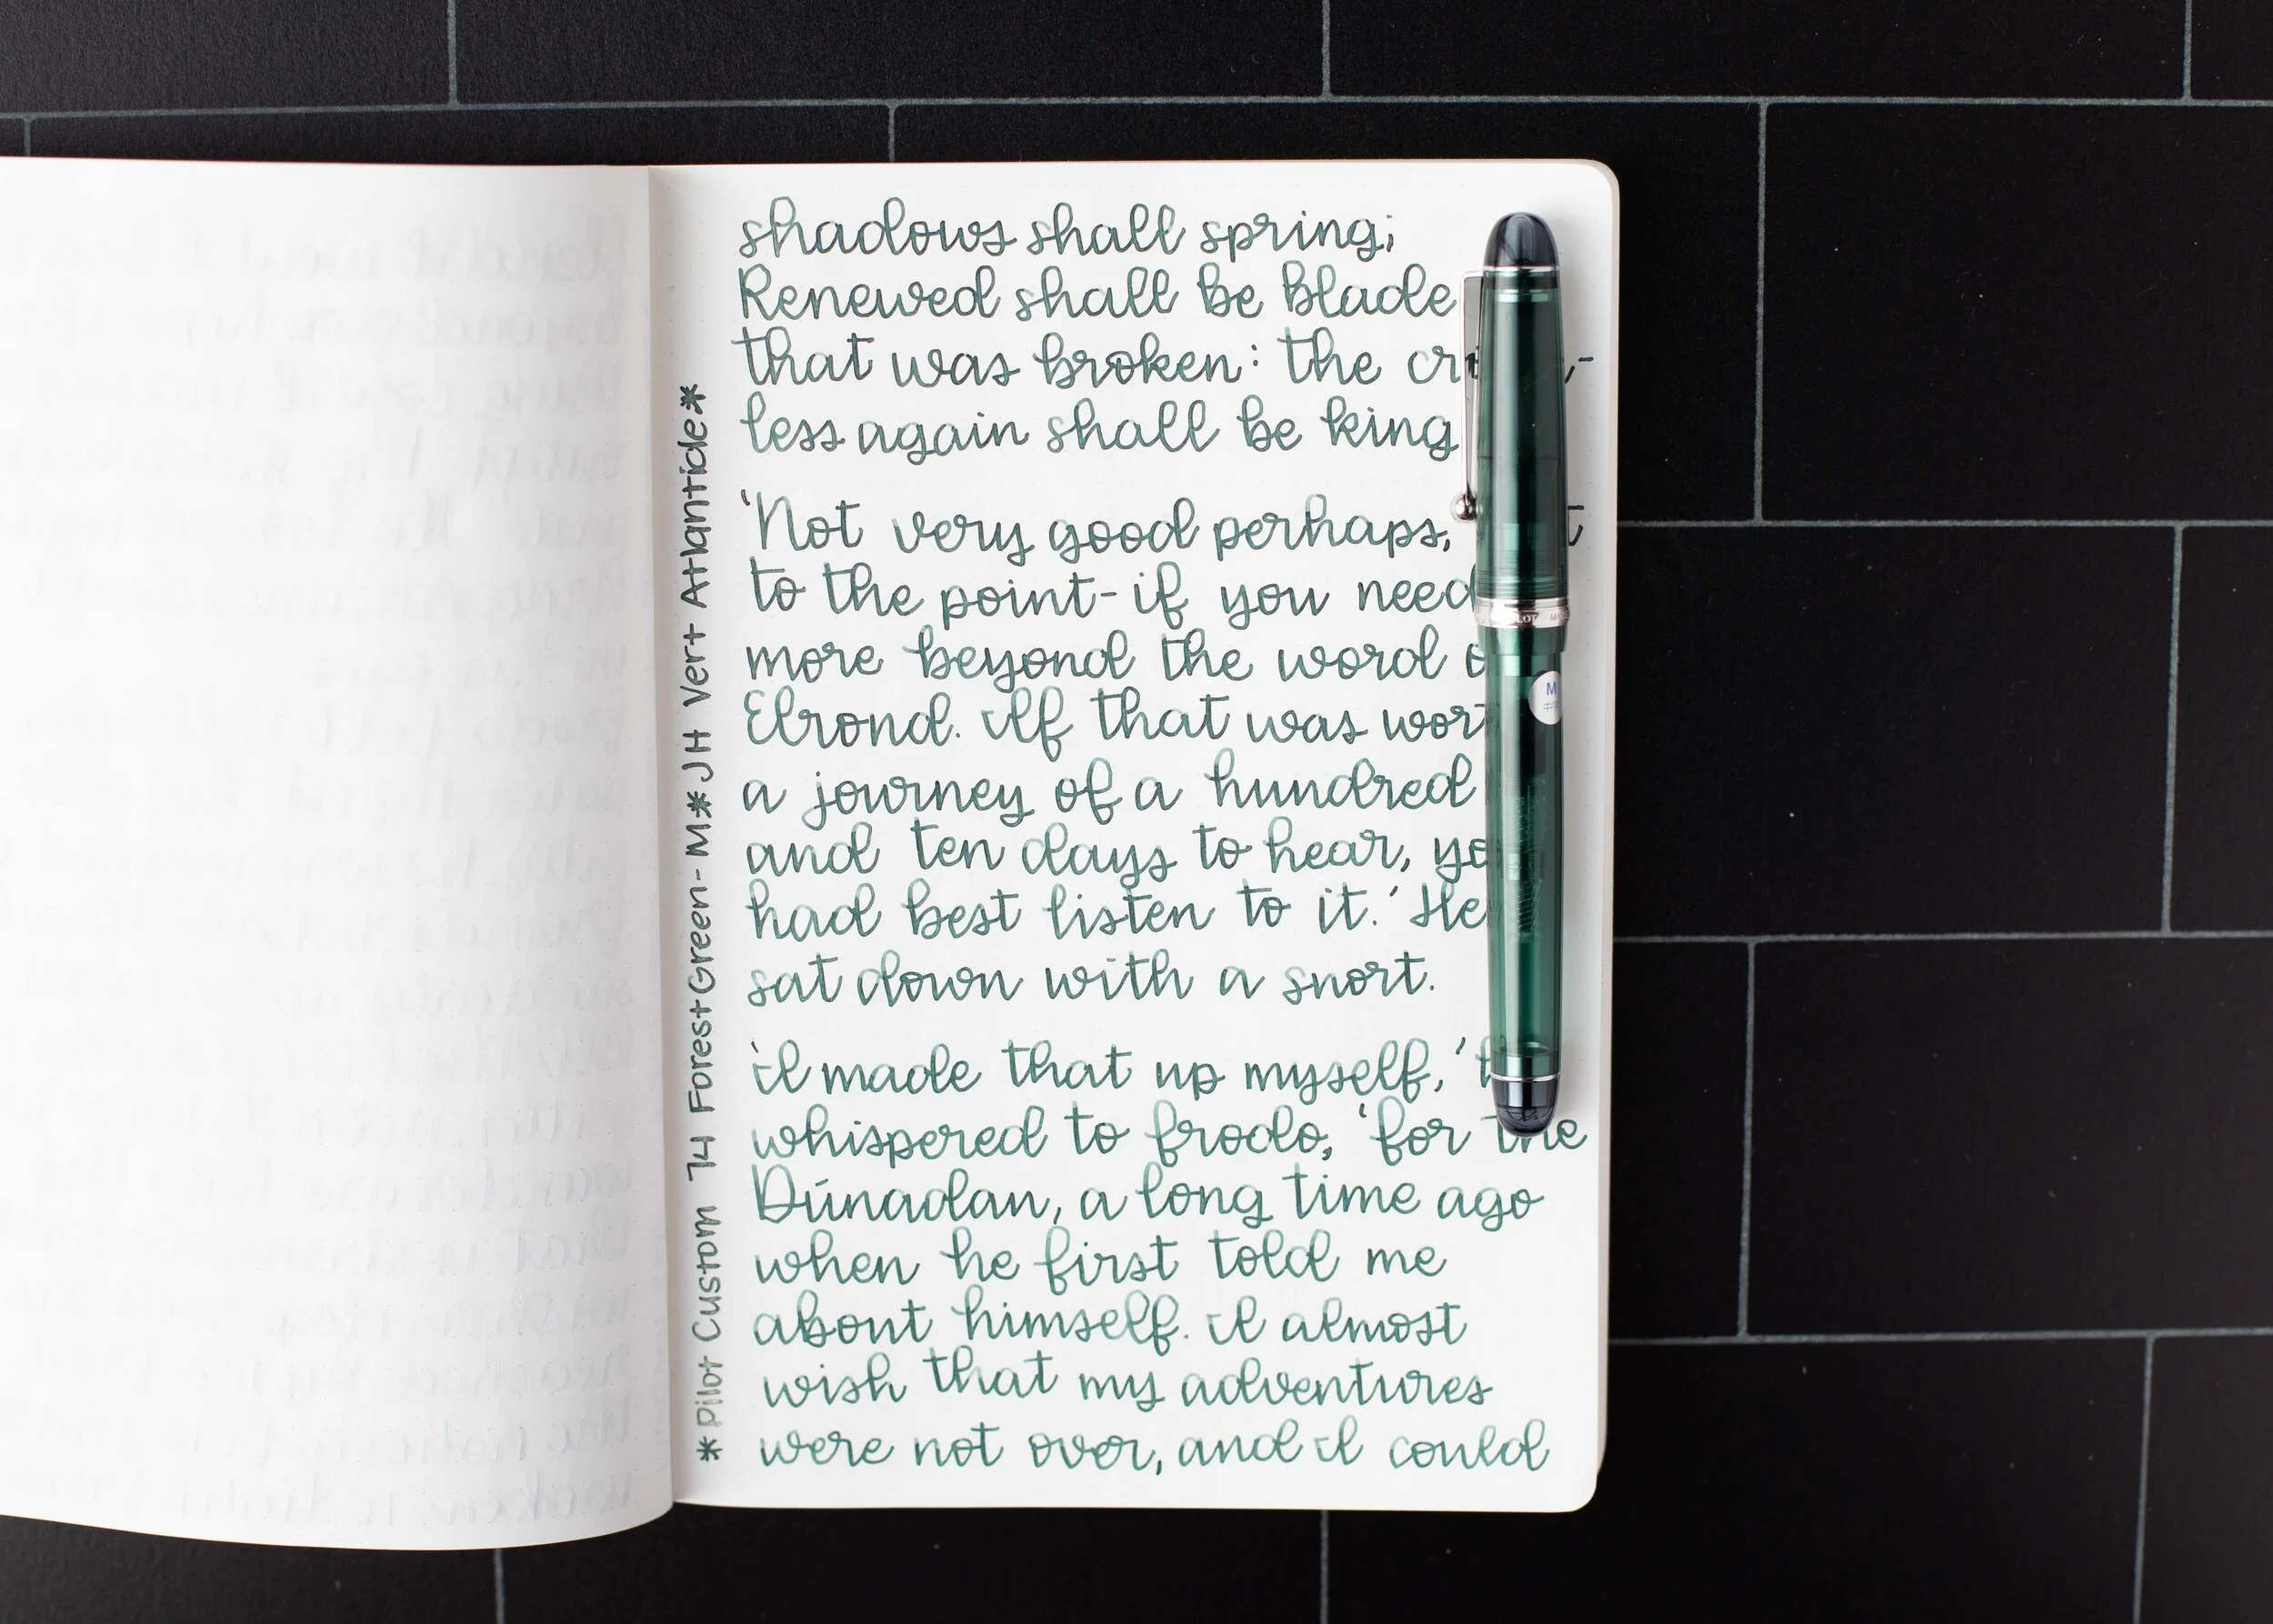 shadows shall spring;
Renewed shall be Blade
that was broken: the
less again shall be king
'Not very good perhaps,
to the point-if you need
more beyond the word
Elrond. If that was
a journey of a hundred
and ten days to hear,
had best listen to it.' He
sat down with a snort.
'I made that up myself,'
whispered to frodo, 'for the
Dúnadan, a long time ago
when he first told me
about himself. I almost
wish that my adventures
were not over, and I could
*Pilot Custom 74 Forest Green-M*JH Vert Atlantide*
M